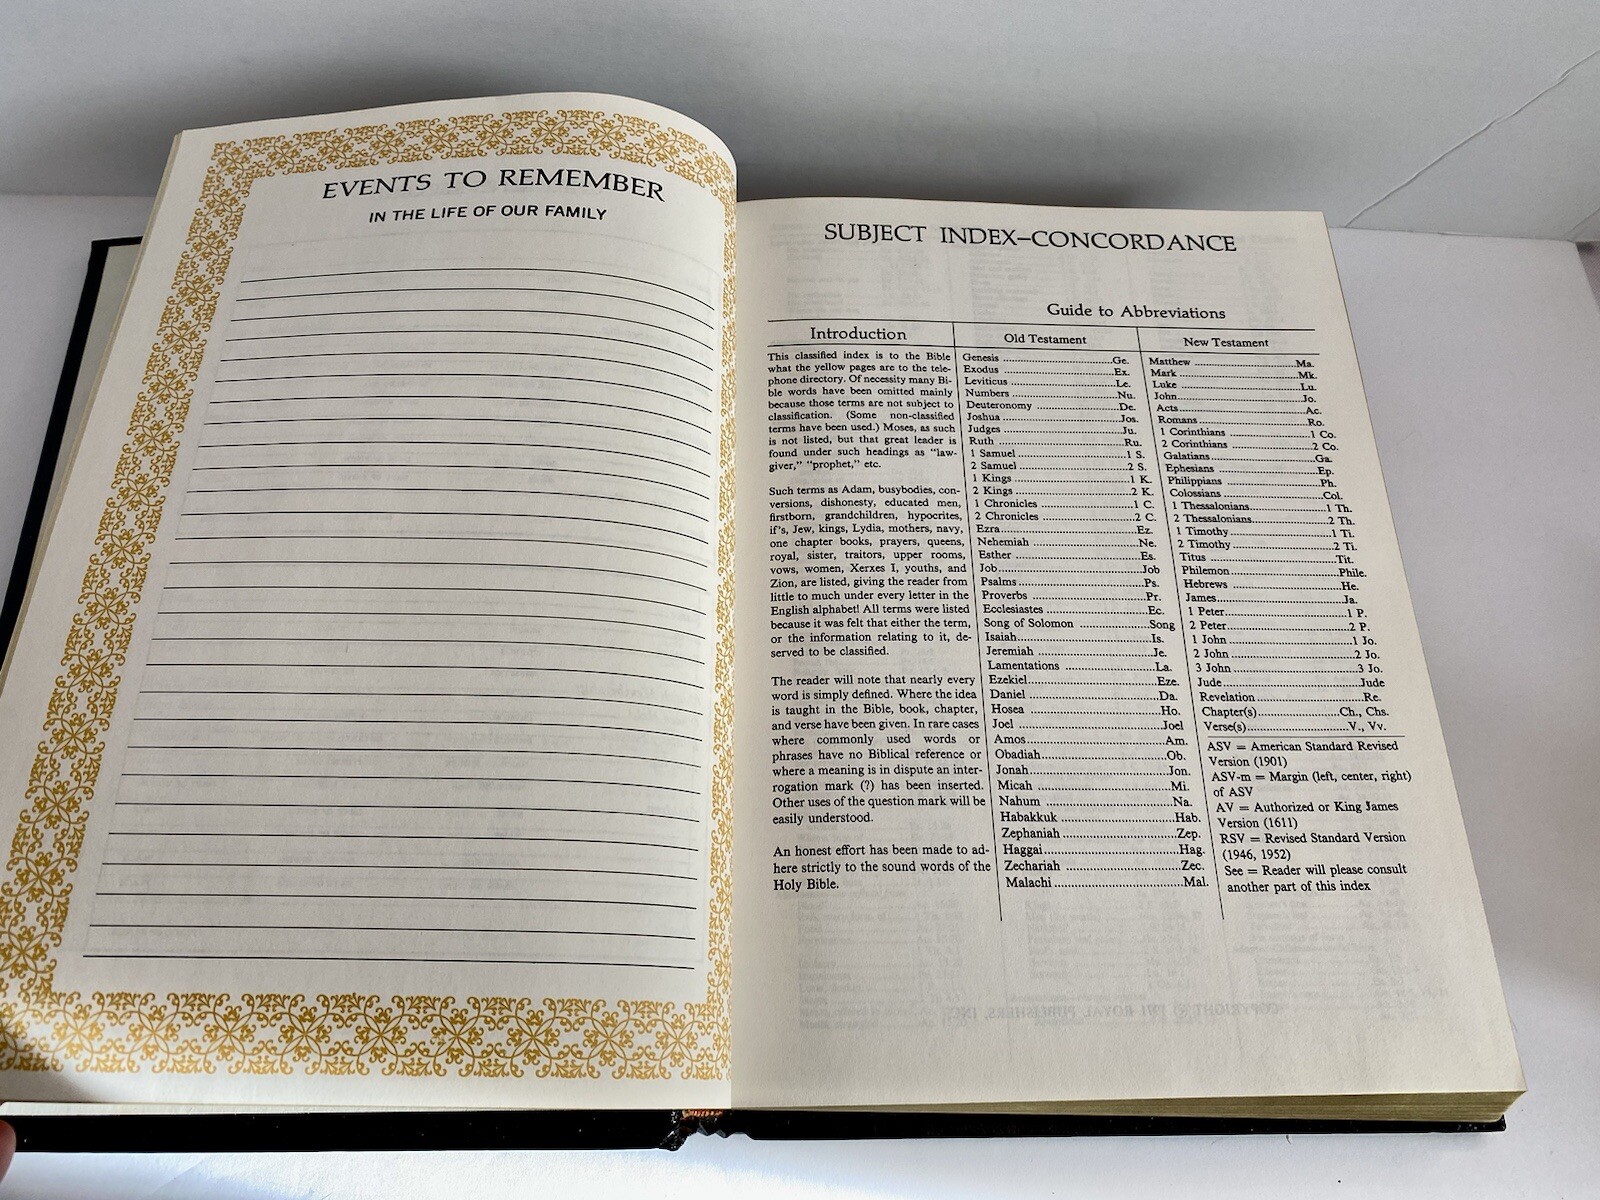 EVENTS TO REMEMBER
IN THE LIFE OF OUR FAMILY
SUBJECT INDEX–CONCORDANCE
Guide to Abbreviations
Introduction
This classified index is to the Bible
what the yellow pages are to the tele-
phone directory. Of necessity many Bi-
ble words have been omitted mainly
because those terms are not subject to
classification. (Some non-classified
terms have been used.) Moses, as such
is not listed, but that great leader is
found under such headings as "law-
giver," "prophet," etc.
Such terms as Adam, busybodies, con-
versions, dishonesty, educated men,
firstborn, grandchildren, hypocrites,
if's, Jew, kings, Lydia, mothers, navy,
one chapter books, prayers, queens,
royal, sister, traitors, upper rooms,
vows, women, Xerxes I, youths, and
Zion, are listed, giving the reader from
little to much under every letter in the
English alphabet! All terms were listed
because it was felt that either the term,
or the information relating to it, de-
served to be classified.
The reader will note that nearly every
word is simply defined. Where the idea
is taught in the Bible, book, chapter,
and verse have been given. In rare cases
where commonly used words or
phrases have no Biblical reference or
where a meaning is in dispute an inter-
rogation mark (?) has been inserted.
Other uses of the question mark will be
easily understood.
An honest effort has been made to ad-
here strictly to the sound words of the
Holy Bible.
Old Testament
Genesis ........ Ge.
Exodus ........ Ex.
Leviticus ........ Le.
Numbers ........ Nu.
Deuteronomy ........ De.
Joshua ........ Jos.
Judges ........ Ju.
Ruth ........ Ru.
1 Samuel ........ 1 S.
2 Samuel ........ 2 S.
1 Kings ........ 1 K.
2 Kings ........ 2 K.
1 Chronicles ........ 1 C.
2 Chronicles ........ 2 C.
Ezra ........ Ez.
Nehemiah ........ Ne.
Esther ........ Es.
Job ........ Job
Psalms ........ Ps.
Proverbs ........ Pr.
Ecclesiastes ........ Ec.
Song of Solomon ........ Song
Isaiah ........ Is.
Jeremiah ........ Je.
Lamentations ........ La.
Ezekiel ........ Eze.
Daniel ........ Da.
Hosea ........ Ho.
Joel ........ Joel
Amos ........ Am.
Obadiah ........ Ob.
Jonah ........ Jon.
Micah ........ Mi.
Nahum ........ Na.
Habakkuk ........ Hab.
Zephaniah ........ Zep.
Haggai ........ Hag.
Zechariah ........ Zec.
Malachi ........ Mal.
New Testament
Matthew ........ Ma.
Mark ........ Mk.
Luke ........ Lu.
John ........ Jo.
Acts ........ Ac.
Romans ........ Ro.
1 Corinthians ........ 1 Co.
2 Corinthians ........ 2 Co.
Galatians ........ Ga.
Ephesians ........ Ep.
Philippians ........ Ph.
Colossians ........ Col.
1 Thessalonians ........ 1 Th.
2 Thessalonians ........ 2 Th.
1 Timothy ........ 1 Ti.
2 Timothy ........ 2 Ti.
Titus ........ Tit.
Philemon ........ Phile.
Hebrews ........ He.
James ........ Ja.
1 Peter ........ 1 P.
2 Peter ........ 2 P.
1 John ........ 1 Jo.
2 John ........ 2 Jo.
3 John ........ 3 Jo.
Jude ........ Jude
Revelation ........ Re.
Chapter(s) ........ Ch., Chs.
Verse(s) ........ V., Vv.
ASV = American Standard Revised
Version (1901)
ASV-m = Margin (left, center, right)
of ASV
AV = Authorized or King James
Version (1611)
RSV = Revised Standard Version
(1946, 1952)
See = Reader will please consult
another part of this index
COPYRIGHT © 1971 ROYAL PUBLISHERS, INC.